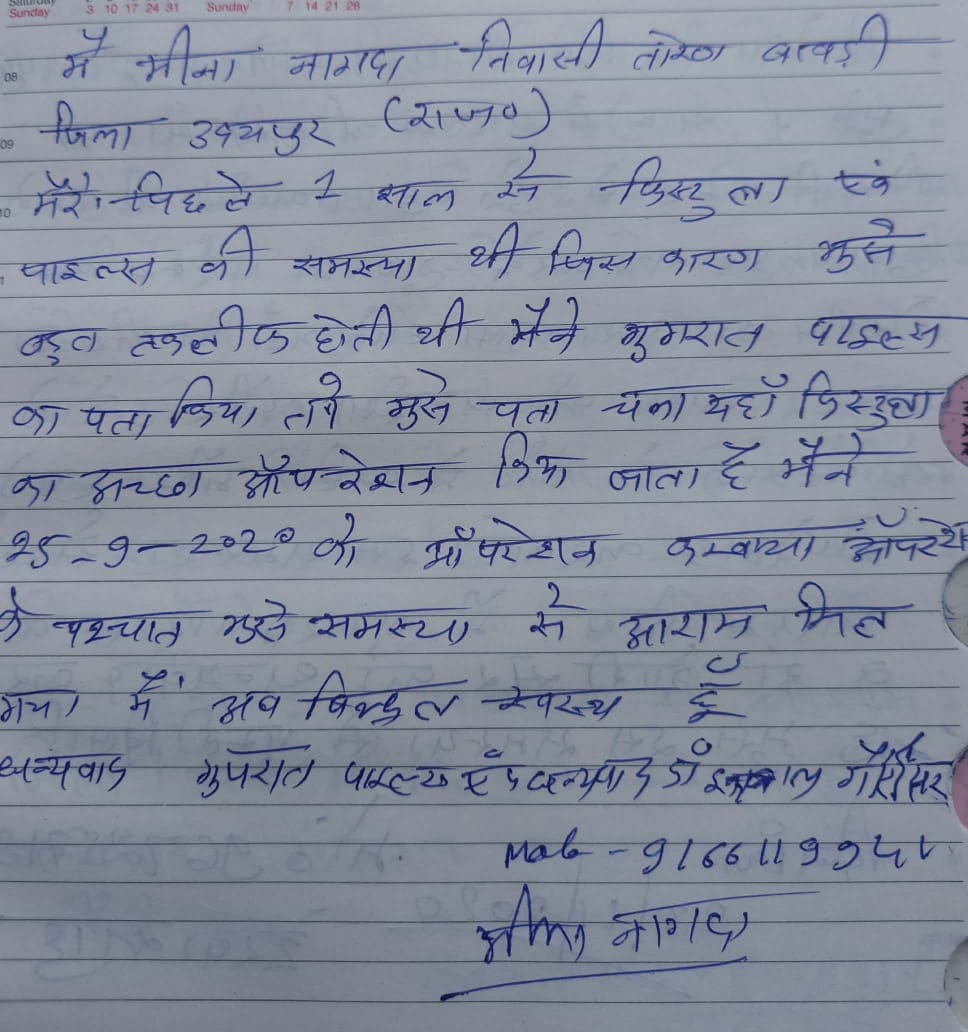 Saturday
Sunday 3 10 17 24 31 Sunday 7 14 21 28
08 मैं मीना नागदा निवासी तोरण बावड़ी
09 जिला उदयपुर (राज०)
10 मेरे पिछले 1 साल से फिस्टुला एवं
पाइल्स की समस्या थी जिस कारण मुझे
बहुत तकलीफ होती थी मैने गुजरात पाइल्स
का पता किया तो मुझे पता चला यहाँ फिस्टुला
का अच्छा ऑपरेशन किया जाता हैं मैने
25-9-2020 को ऑपरेशन करवाया ऑपरेशन
के पश्चात मुझे समस्या से आराम मिल
गया मैं अब बिल्कुल स्वस्थ हूँ
धन्यवाद गुजरात पाइल्स एवं धन्यवाद डॉ सर
Mob - 91661199
मीना नागदा